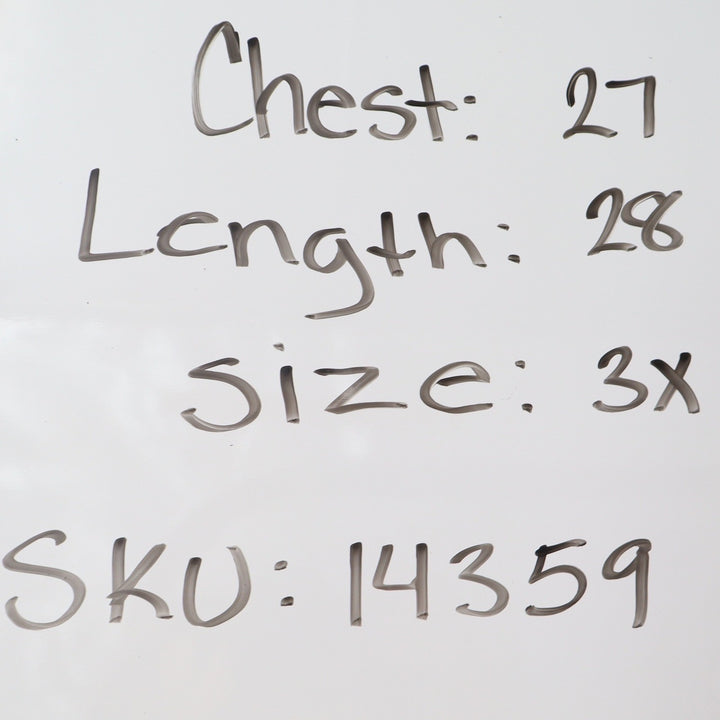 Chest: 27
Length: 28
Size: 3X
SKU: 14359